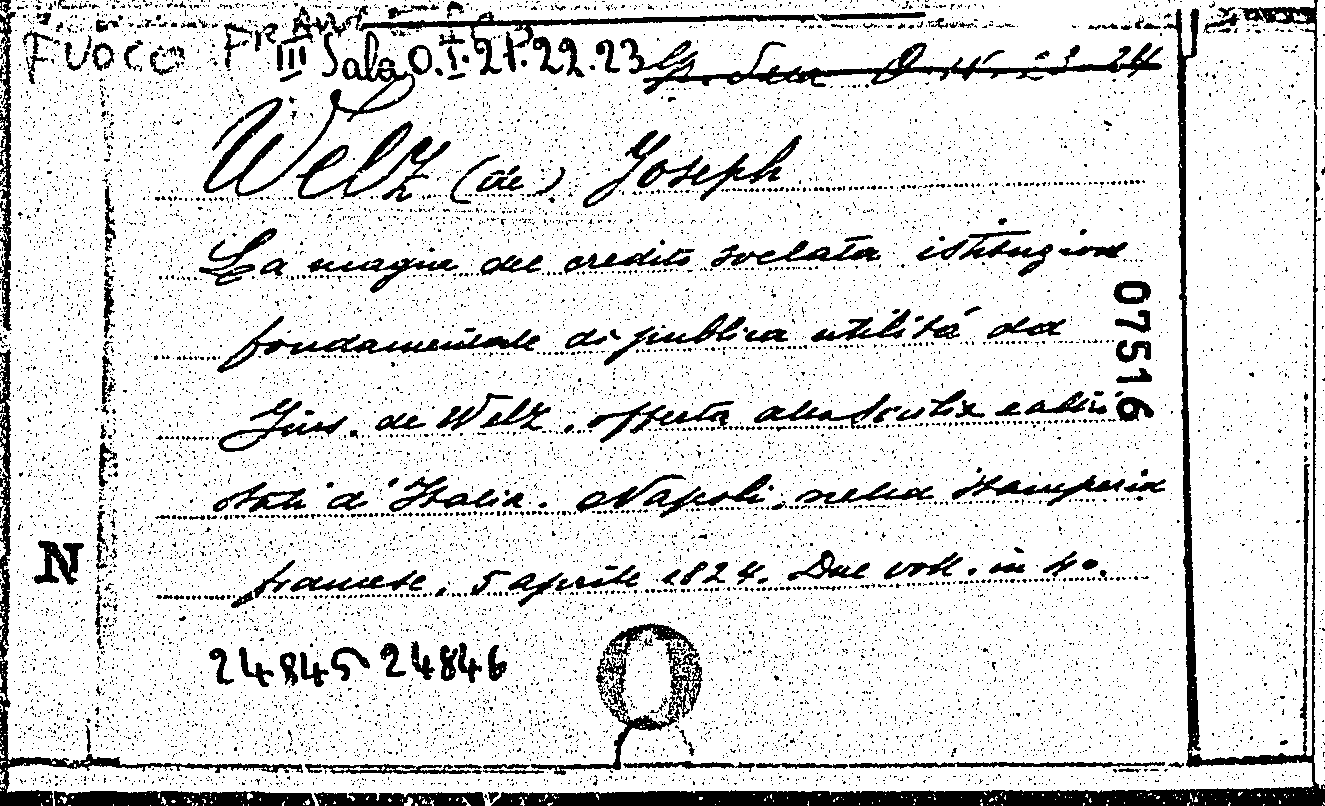 FUOCO Fr
III Sala O.I.21.22.23
Welz (de) Joseph
La magie del credito svelata istituzione
fondamentale di publica utilitá da
Gius. de Welz. offerta alla Sicilia
stati d'Italia. Napoli, nella stamperia
francese, 5 aprile 1824. Due voll. in 4o.
24845 24846
07516
N